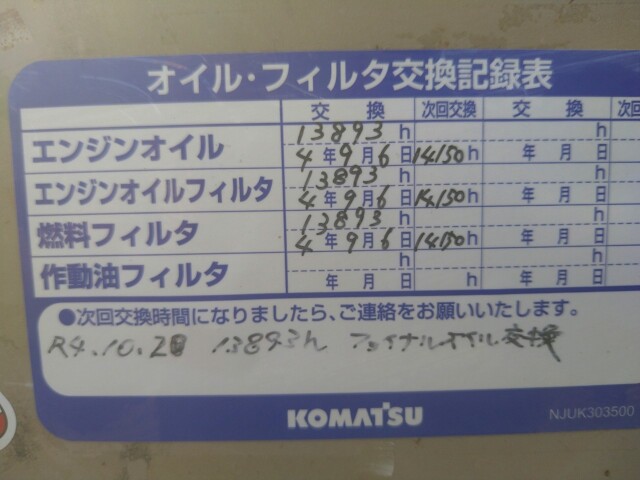 オイル・フィルタ交換記録表
交 換 次回交換 交 換 次回
エンジンオイル 13893h h
4年9月6日 14150h 年 月 日
エンジンオイルフィルタ 13893h h
4年9月6日 14150h 年 月 日
燃料フィルタ 13893h h
4年9月6日 14150h 年 月 日
作動油フィルタ h h
年 月 日 h 年 月 日
●次回交換時間になりましたら、ご連絡をお願いいたします。
R4.10.2 13893h ファイナルオイル交換
KOMATSU
NJUK303500